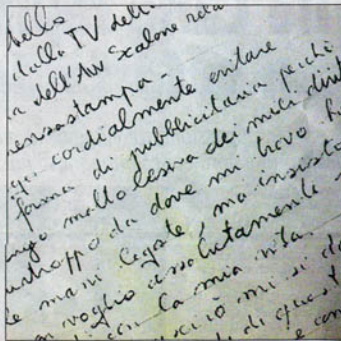 dello
dalla TV dell
dell'Avv Scalone rela
ensastampa -
cordialmente evitare
forma di pubblicitaria perchè
molto lesiva dei miei diritt
troppo da dove mi trovo h
le mani legate, ma insisto
voglio assolutamente
la mia vita.
ciò mi si d
di quest
e con